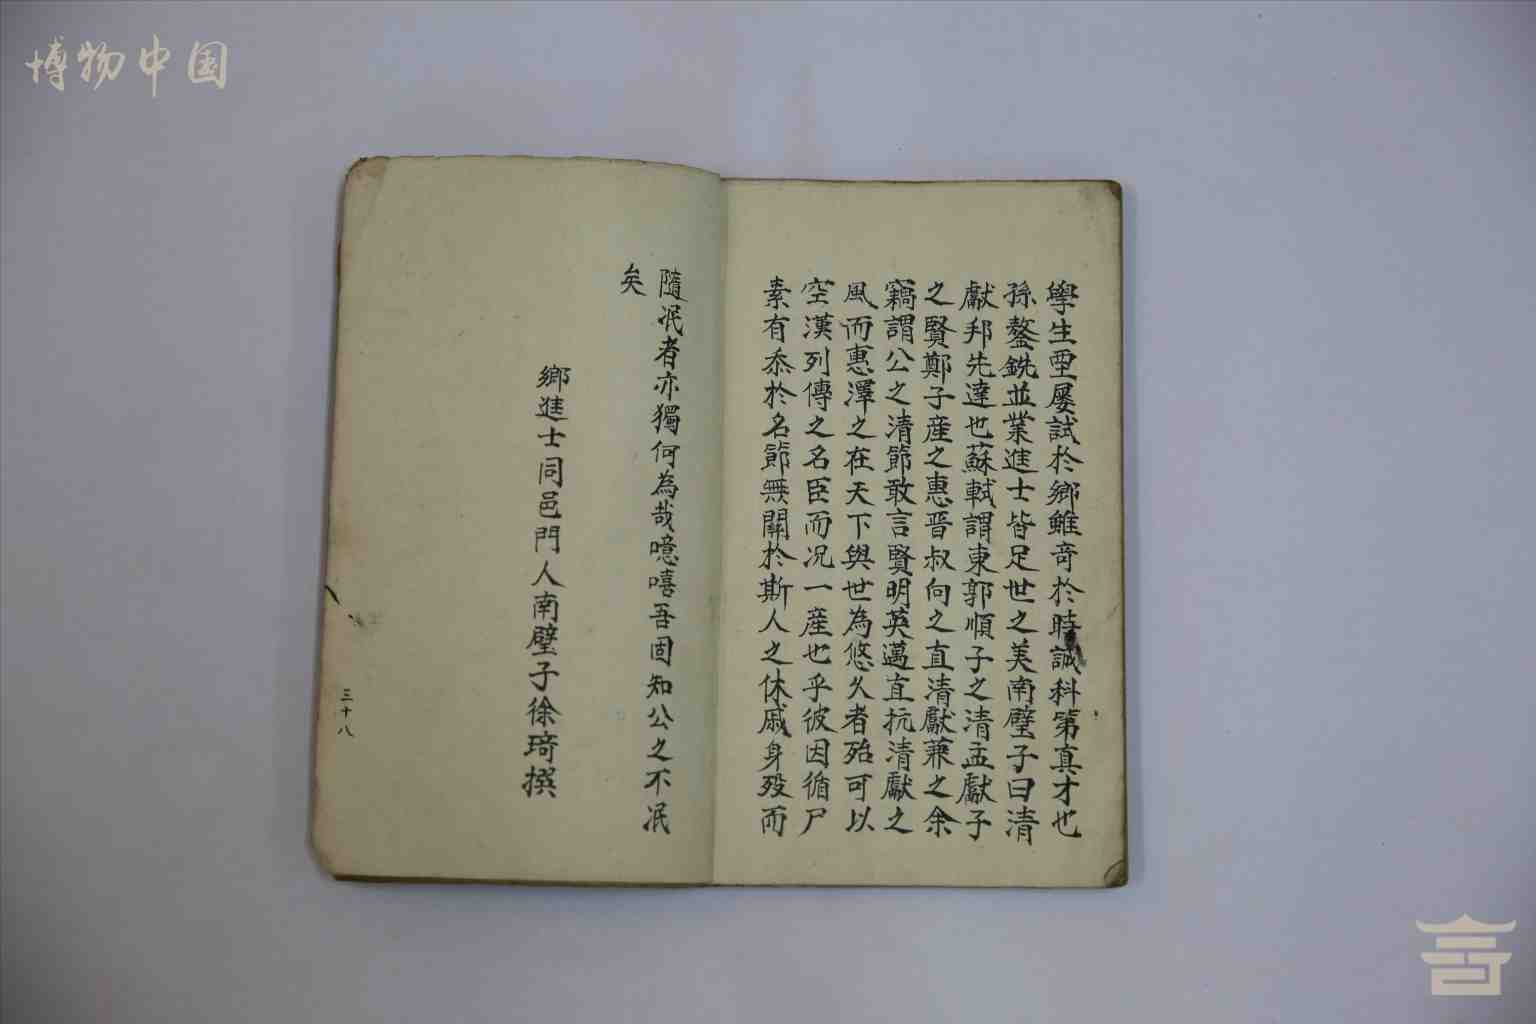 博物中国
學生垔屡試於鄉雖竒於時誠科第真才也
孫鏊銑並業進士皆足世之美南壁子曰清
獻邦先達也蘇軾謂東郭順子之清孟獻子
之賢鄭子産之惠晋叔向之直清獻兼之余
竊謂公之清節敢言賢明英邁直抗清獻之
風而惠澤之在天下與世為悠久者殆可以
空漢列傳之名臣而况一産也乎彼因循尸
素有忝於名節無關於斯人之休戚身殁而
隨泯者亦獨何為哉噫嘻吾固知公之不泯
矣
鄉進士同邑門人南壁子徐琦撰
三十八